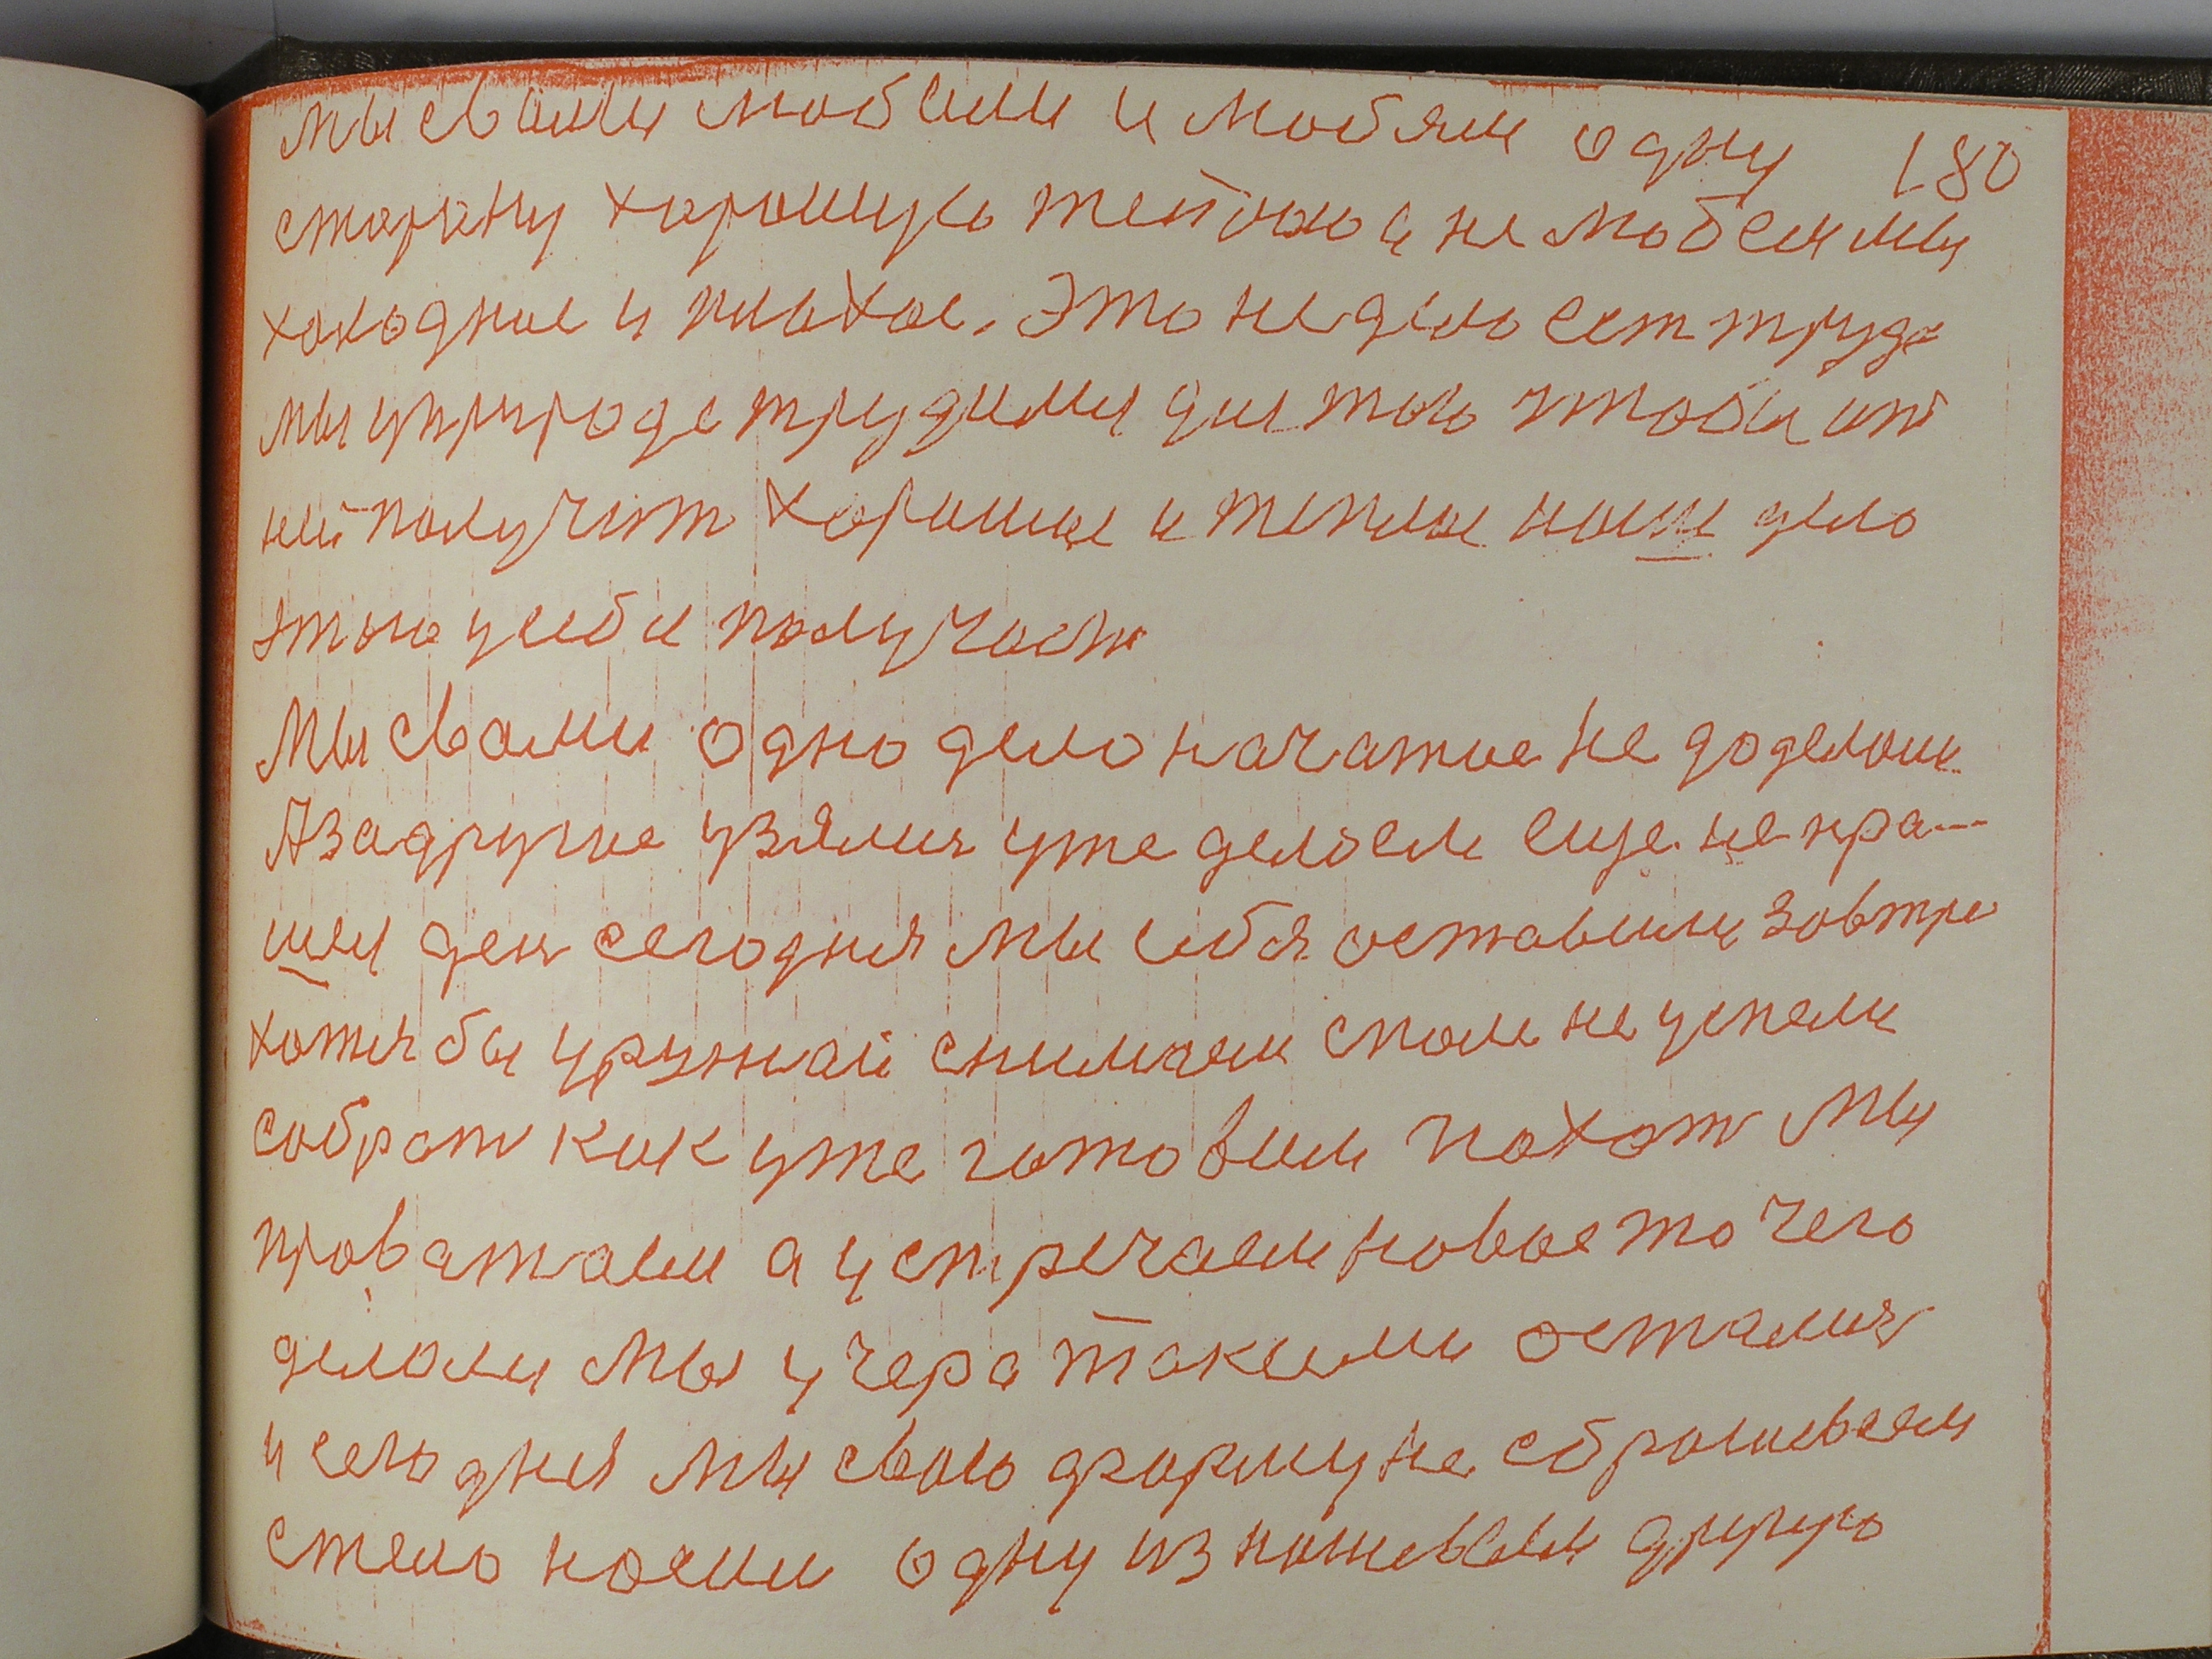 мы свами любили и любям одну 180
сторону хорошую тепою и не любем мы
холодное и плохое. Это не дело ест труд
мы у природе трудимы для того чтобы от
ней получит хорошие и теплые наше дело
этого у себе получает
Мы свами одно дело начатое не доделоли
А за другие узялися уже делаем еще не пра-
шел ден сегодня мы себя оставили завтре
хотя бы урузнай снимаем споля не успели
собрат как уже готовим пахат Мы
провятаем а устречаем новое то чего
делали мы учера такими осталися
и сегодня мы свою форму не сбрасываем
стело носим одну изношеваем другую